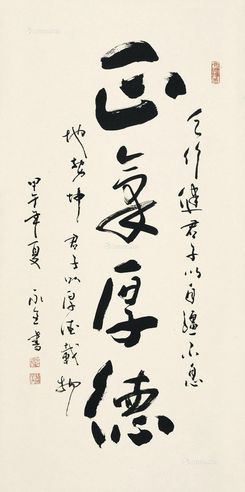 天行健君子以自彊不息
正氣厚德
地勢坤君子以厚德載物
甲午年夏 永 書